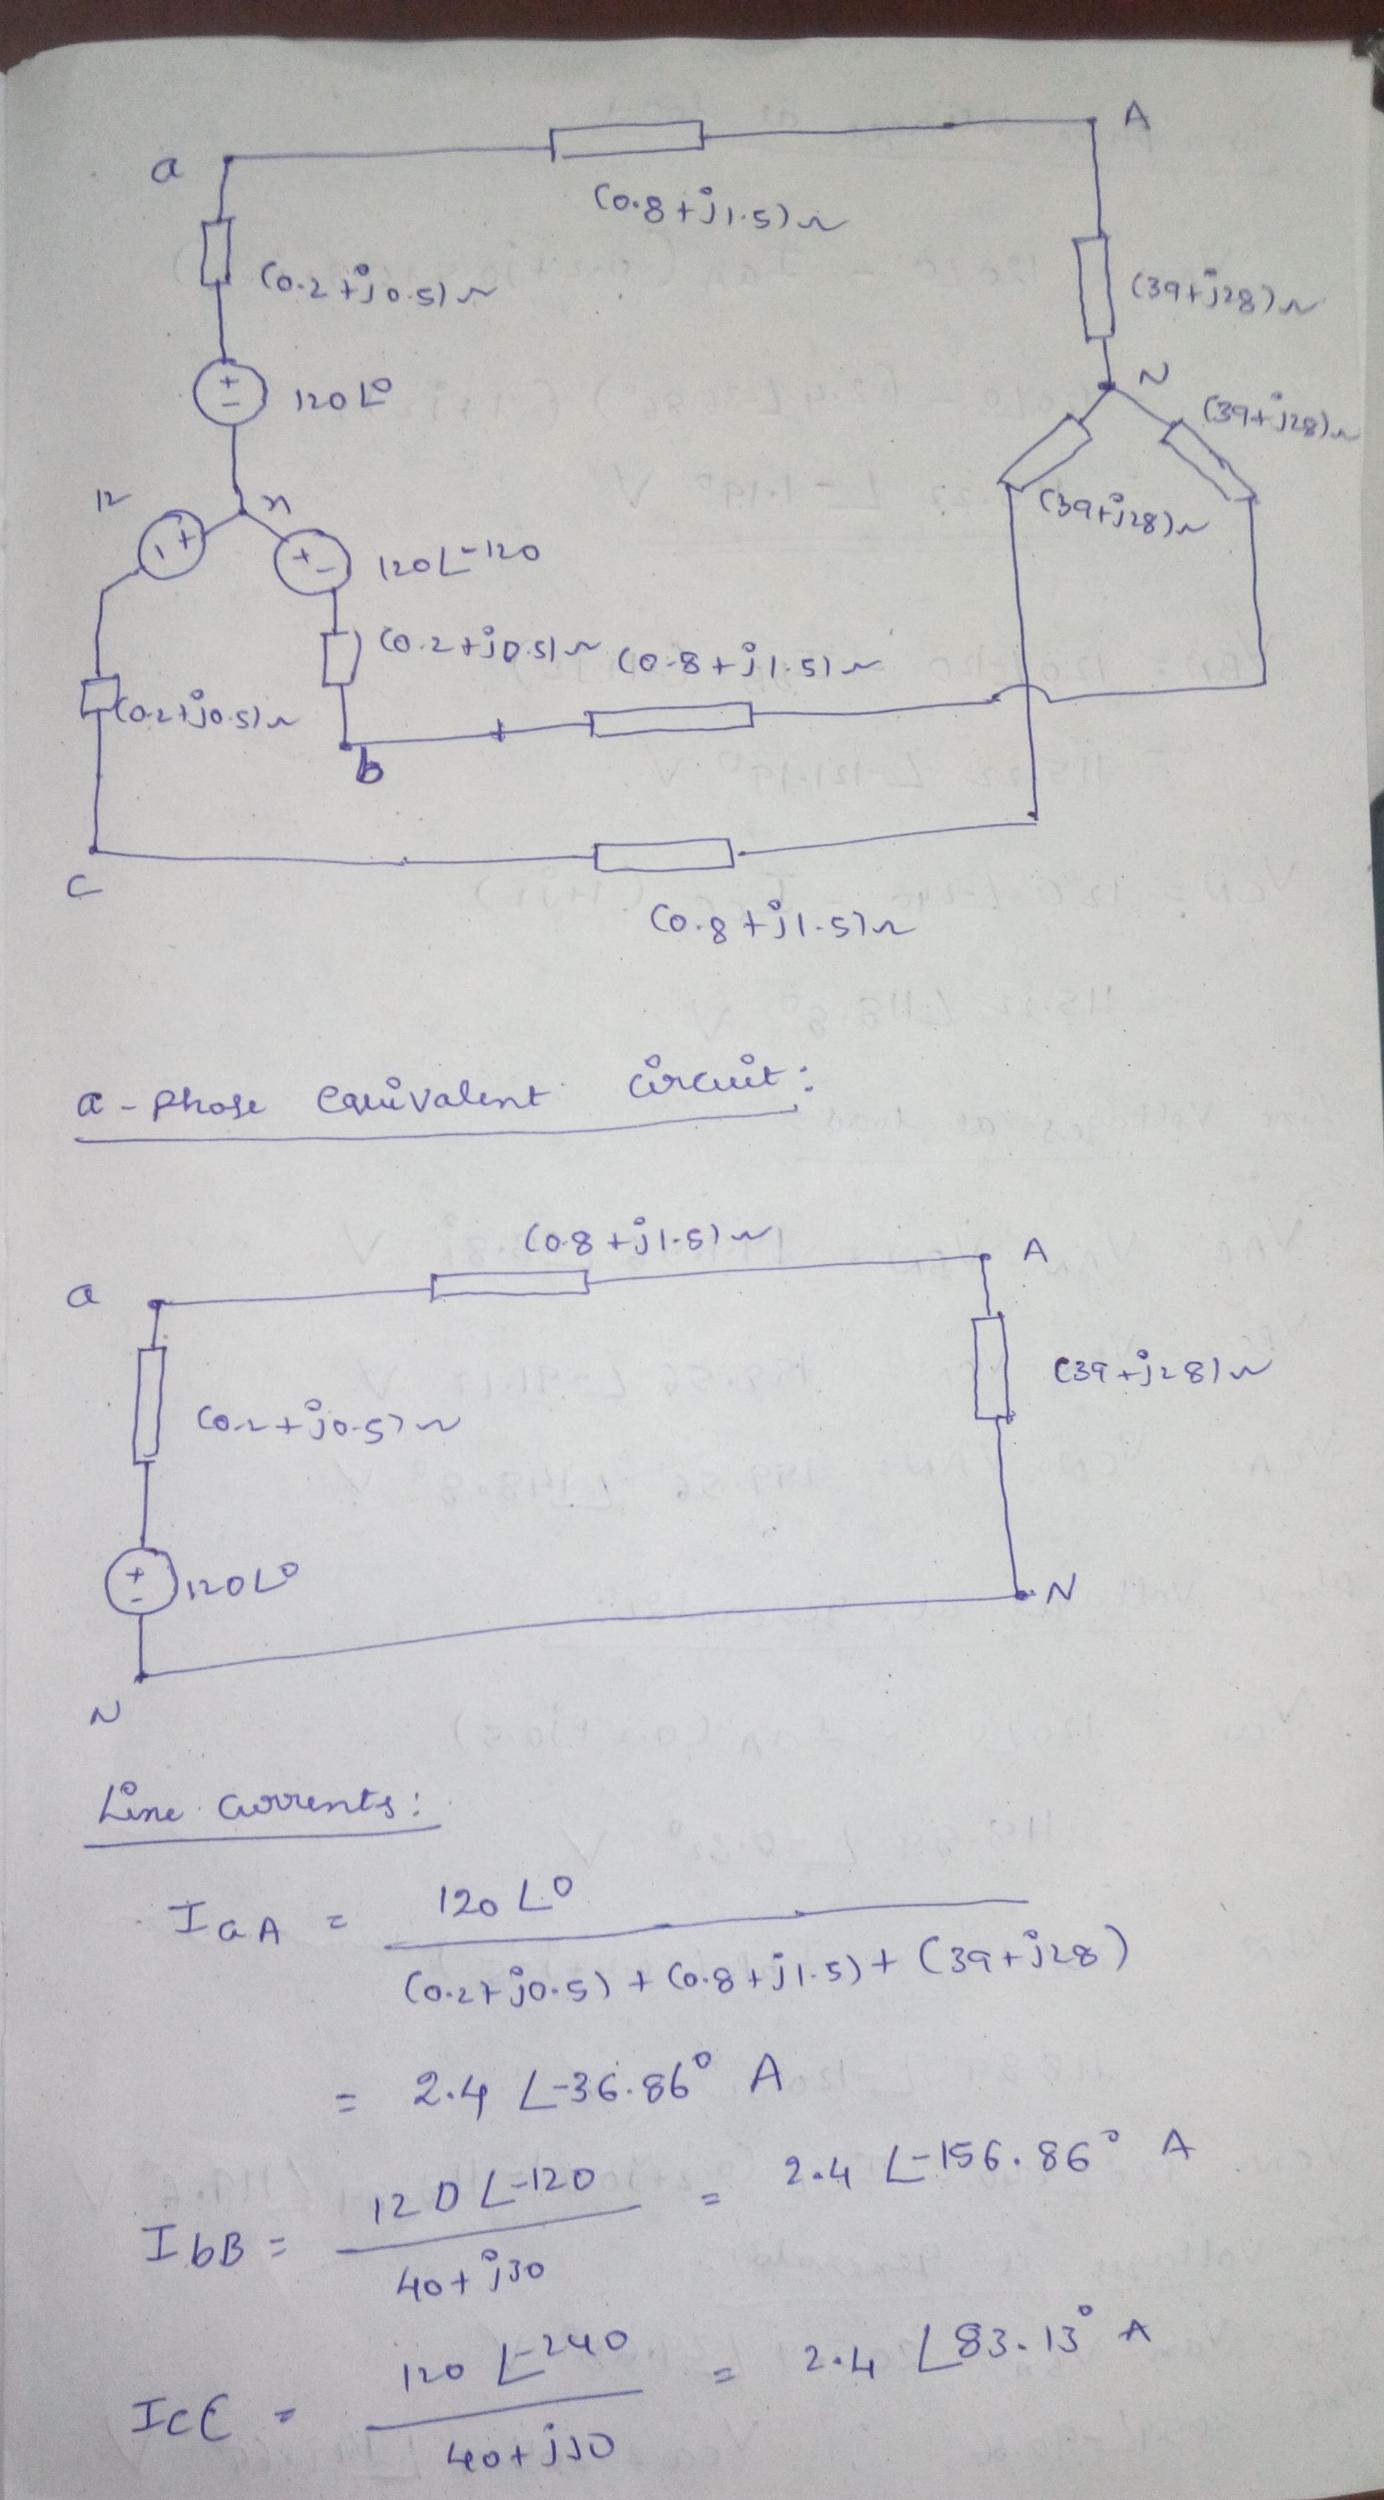 A
a
(0.8+j1.5)Ω
(0.2+j0.5)Ω
(39+j28)Ω
N
120∠0
(39+j28)Ω
12
n
(39+j28)Ω
120∠-120
(0.2+j0.5)Ω
(0.8+j1.5)Ω
(0.2+j0.5)Ω
b
c
(0.8+j1.5)Ω
a-phase equivalent circuit:
(0.8+j1.5)Ω
A
a
(39+j28)Ω
(0.2+j0.5)Ω
120∠0
N
N
Line currents:
IaA = 120∠0 / (0.2+j0.5)+(0.8+j1.5)+(39+j28)
= 2.4 ∠-36.86° A
IbB = 120∠-120 / 40+j30 = 2.4 ∠-156.86° A
IcC = 120∠-240 / 40+j30 = 2.4 ∠83.13° A